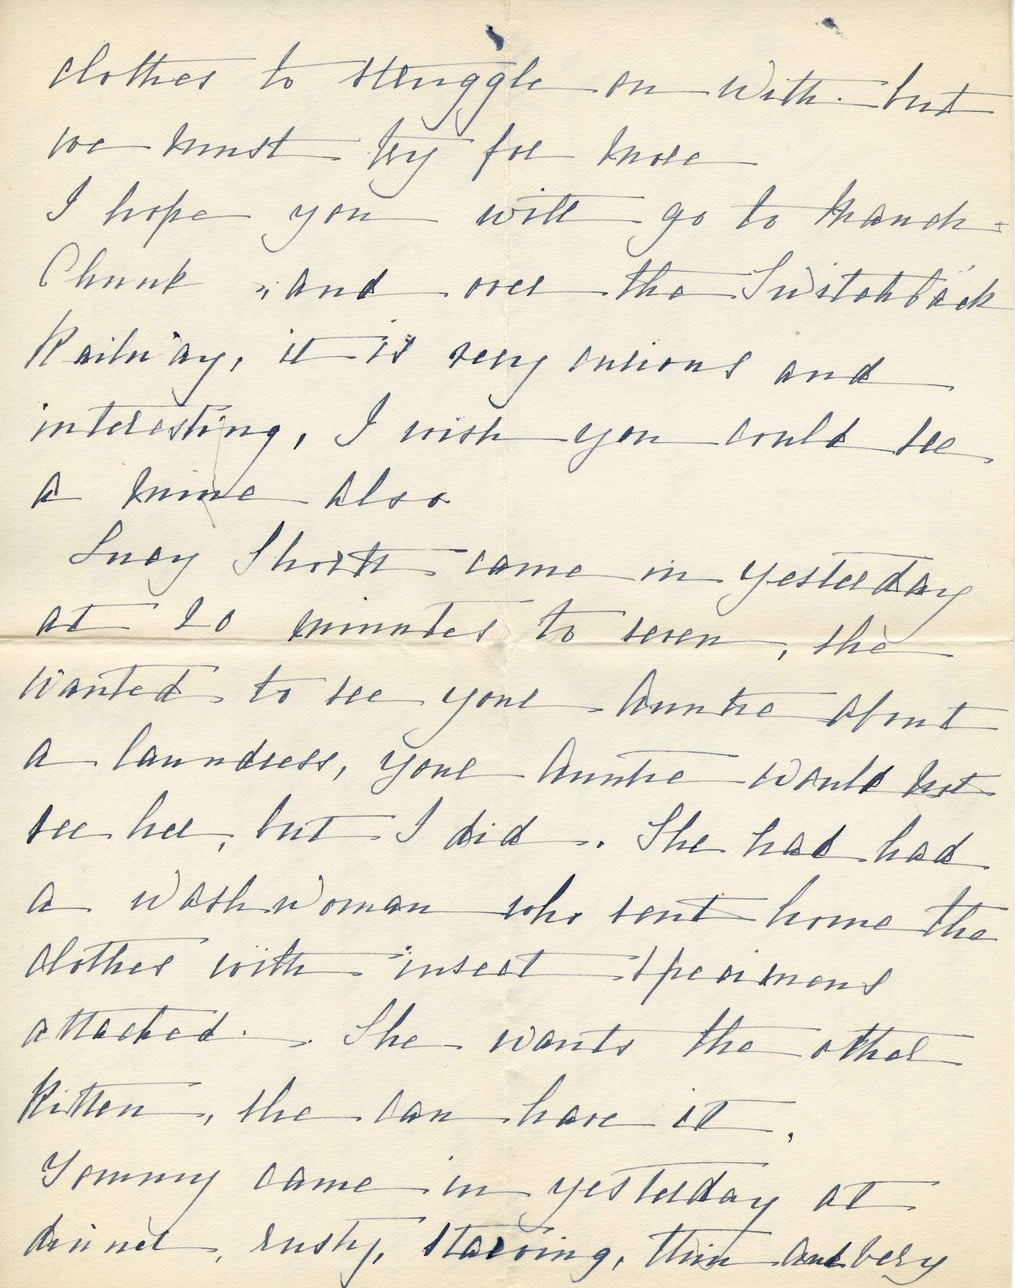 clothes to struggle on with. but
we must try for more
I hope you will go to Mauch-
Chunk, and over the Switchback
Railway, it is very curious and
interesting, I wish you could see
a mine also
Lucy Short came in yesterday
at 20 minutes to seven, she
wanted to see your Auntie about
a laundress, your Auntie would not
see her, but I did. She had had
a washwoman who sent home the
clothes with insect specimens
attached. She wants the other
Kitten, she can have it.
Tommy came in yesterday at
dinner, rusty, starving, thin and very